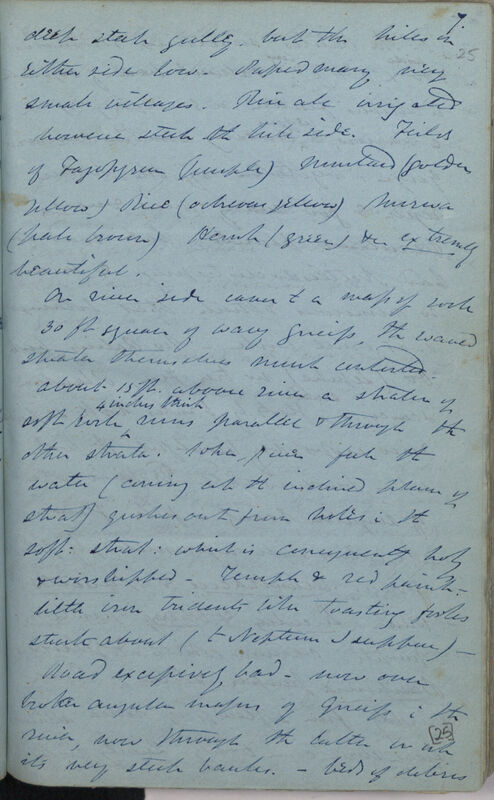 7
25
deep steep gulley, but the hills on
either side low. Passed many very
small villages. Rice are irrigated
however steep the hill side. Fields
of Fagopyrum (purple) mustard (golden
yellow) Rice (ochreous yellow) Murwa
(pale brown) Hemp (green) &c extremely
beautiful.
On river side came to a mass of rock
30 ft square of wavy gneiss, the waved
strata themselves much contorted.
about 15 ft. above river a stratum of
soft rock 4 inches thick runs parallel & through the
other strata. When river full the
water (coming at the inclined plane of
strat) gushes out from holes i the
soft: strat: which is consequently holy
& worshipped - Temple & red paint -
little iron tridents like toasting forks
stuck about (to Neptune I suppose) -
Road excessively bad - now over
broken angular masses of Gneiss i the
river, now through the latter or up
its very steep banks. - beds of debris
25